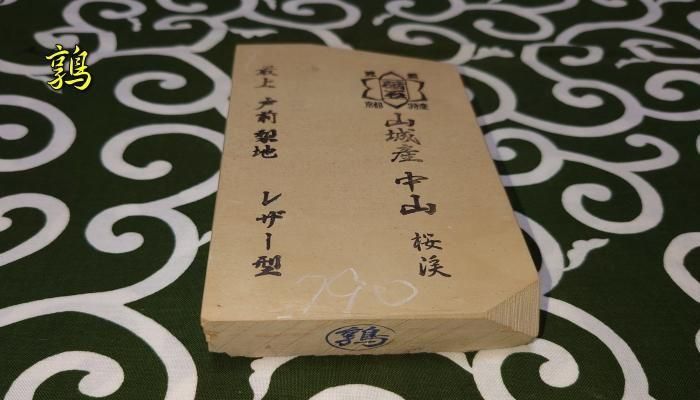 鶉
最上 戸前 梨地 レザー型
砥石
京都 特産
山城産 中山 桜渓
790
鶉